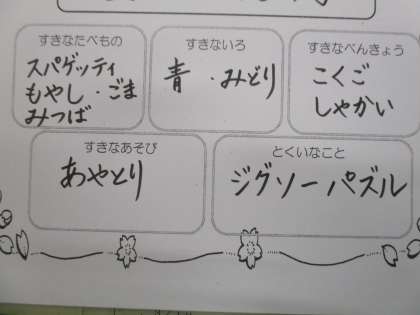 すきなたべもの
スパゲッティ
もやし・ごま
みつば
すきないろ
青・みどり
すきなべんきょう
こくご
しゃかい
すきなあそび
あやとり
とくいなこと
ジグソーパズル